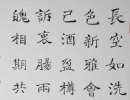 長空如洗
色新雅會
已酒盈樽
訴衷腸雨
魄相期共